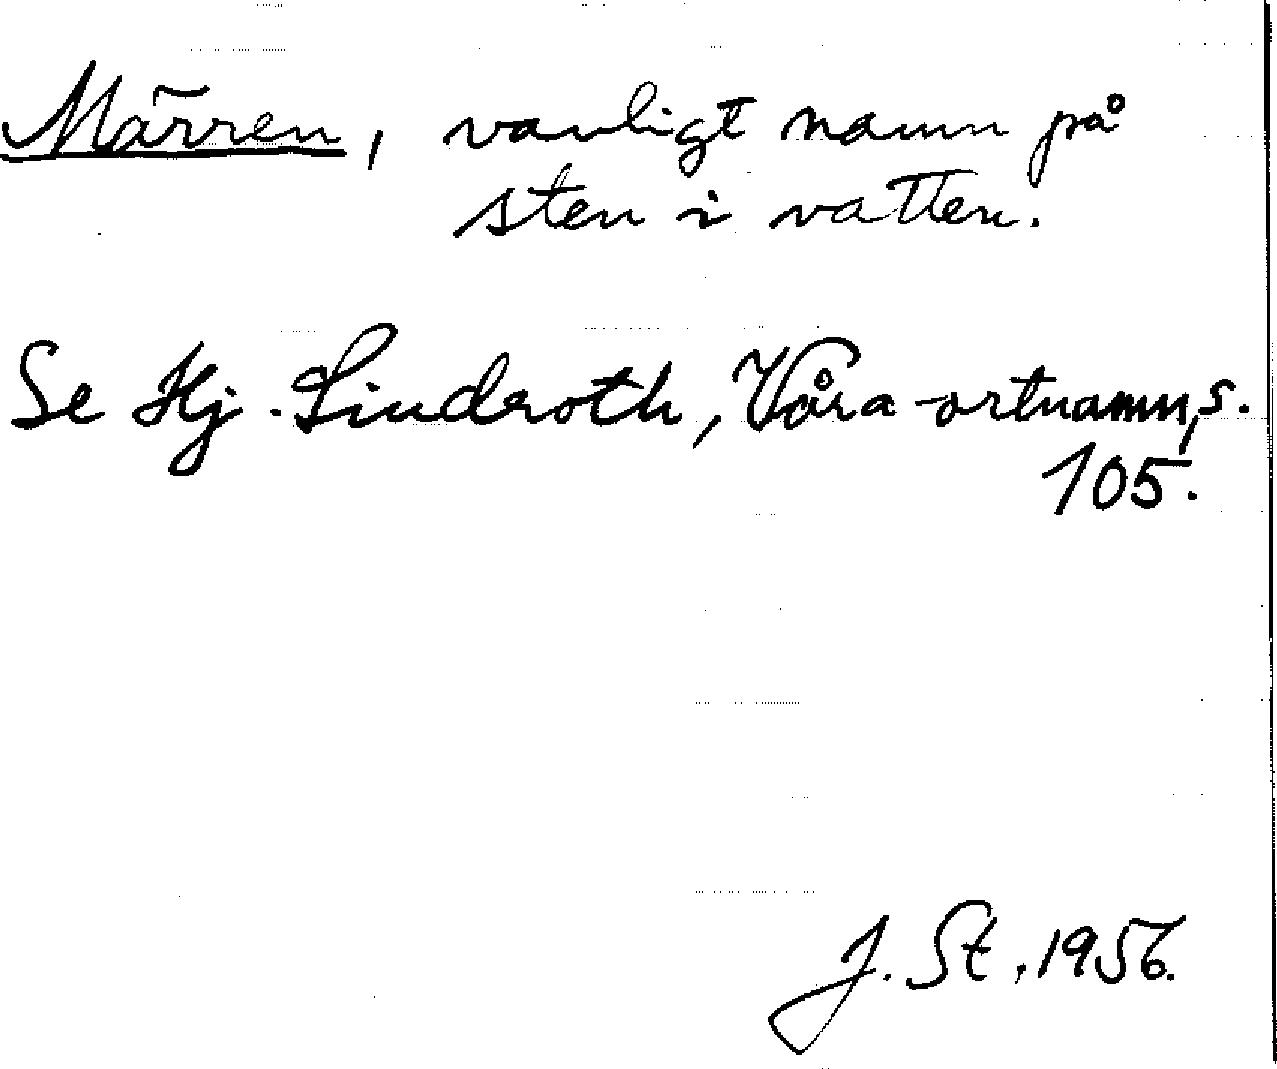 Märren, vanligt namn på
sten i vatten.
Se Hj. Lindroth, Våra ortnamn, s.
105.
J. St. 1956.